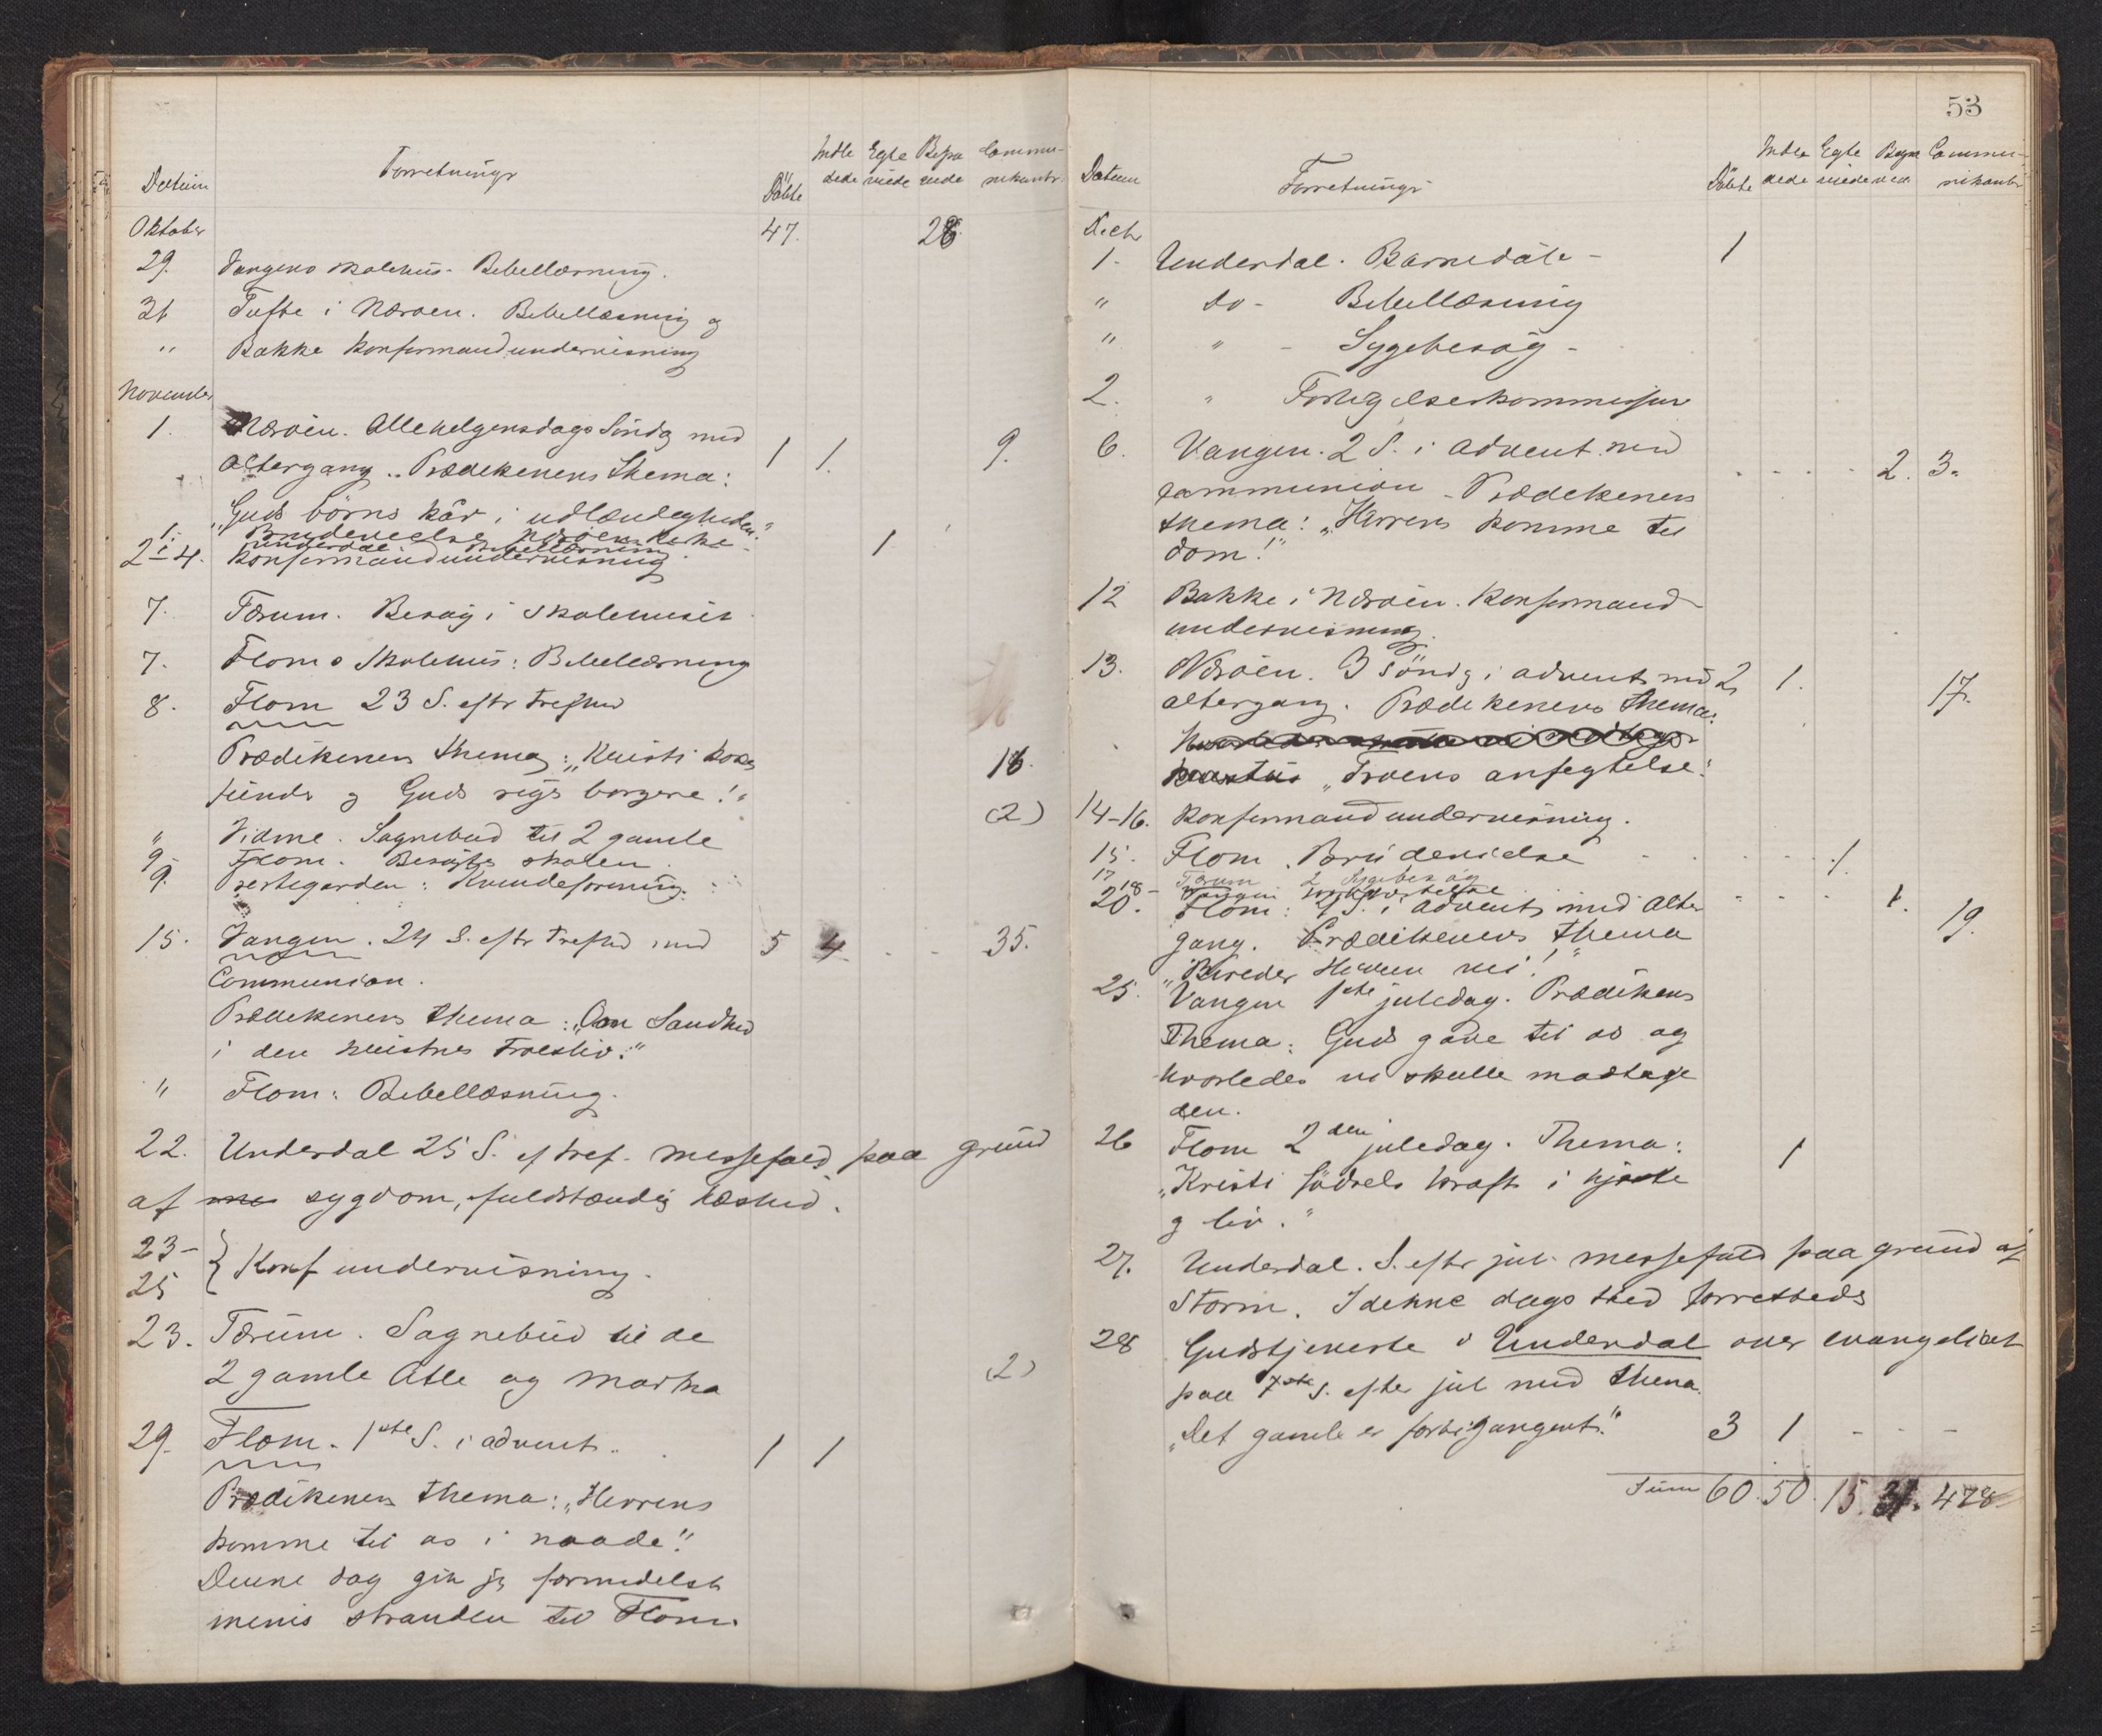 Datum Forretninger Döbte Indle Egte Begra Commu-
dede viede vede nikanter
Oktober 47. 28
29. Vangens skolehus. Bibellæsning.
31 Tufte i Næröen. Bibellæsning og
" Bakke konfirmandundervisning
November
1. Næröen. Allehelgensdags Söndag med 1 1. 9.
altergang. Prædikenens thema:
"Guds börns kår i udlændigheden."
1. Brudevielse Næröens kirke 1
2-4. Underdal Bibellæsning
konfirmandundervisning
7. Færum. Besög i skolehuset
7. Floms Skolehus: Bibellæsning
8. Flom 23 S. eftr trefhed
Prædikenens thema: "Kristi kors 16.
fiender og Guds riges borgere!"
" Vidme. Sognebud til 2 gamle (2)
9. Flom. Besögte skolen.
9. Prestegarden: Kvindeforening.
15. Vangen. 24 S. eftr trefhed med 5 4 - - 35.
Communion.
Prædikenens thema: "Om Sandhed
i den kristnes Troesliv."
" Flom: Bibellæsning.
22. Underdal 25 S. ef tref. messefald paa grund
af sygdom, fuldstændig hæshed.
23-
25 } Konf undervisning.
23. Færum. Sognebud til de
2 gamle Atle og Martha (2)
29. Flom. 1ste S. i advent. 1 1
Prædikenens thema: "Herrens
komme til os i naade!"
Denne dag gik jeg formedelst
menis stranden til Flom.
53
Datum Forretninger Döbte Indle Egte Begra Commu-
dede viede vede nikanter
Decbr
1. Underdal. Barnedåb - 1
" do - Bibellæsning
" " - Sygebesög -
2. " Forligelseskommission
6. Vangen. 2 S. i advent med - - - - 2. 3.
communion - Prædikenens
thema: "Herrens komme til
dom!"
12 Bakke i Næröen. Konfirmand-
undervisning.
13. Næröen. 3 söndag i advent med 2 1. 17.
altergang. Prædikenens thema:
"Troens anfegtelse."
14-16. konfirmandundervisning.
15. Flom. Brudevielse - - - - 1.
17 Færum 2 Sygebesög
18- Vangen
20. Flom: 4 S. i advent med alter - - - 1. 19.
gang. Prædikenens thema
"Bereder Herren vei!"
25. Vangen 1ste juledag. Prædikens
Thema: Guds gave til os og
hvorledes vi skulle modtage
den.
26 Flom 2den juledag. Thema: 1
"Kristi födsels kraft i hjerte
og liv."
27. Underdal. S. eftr jul. messefald paa grund af
Storm. I denne dags sted forrettedes
28 Gudstjeneste i Underdal over evangeliet
paa 7de s. efter jul med thema
"Det gamle er forbigangent." 3 1 - - -
Sum 60. 50. 15. 31. 478